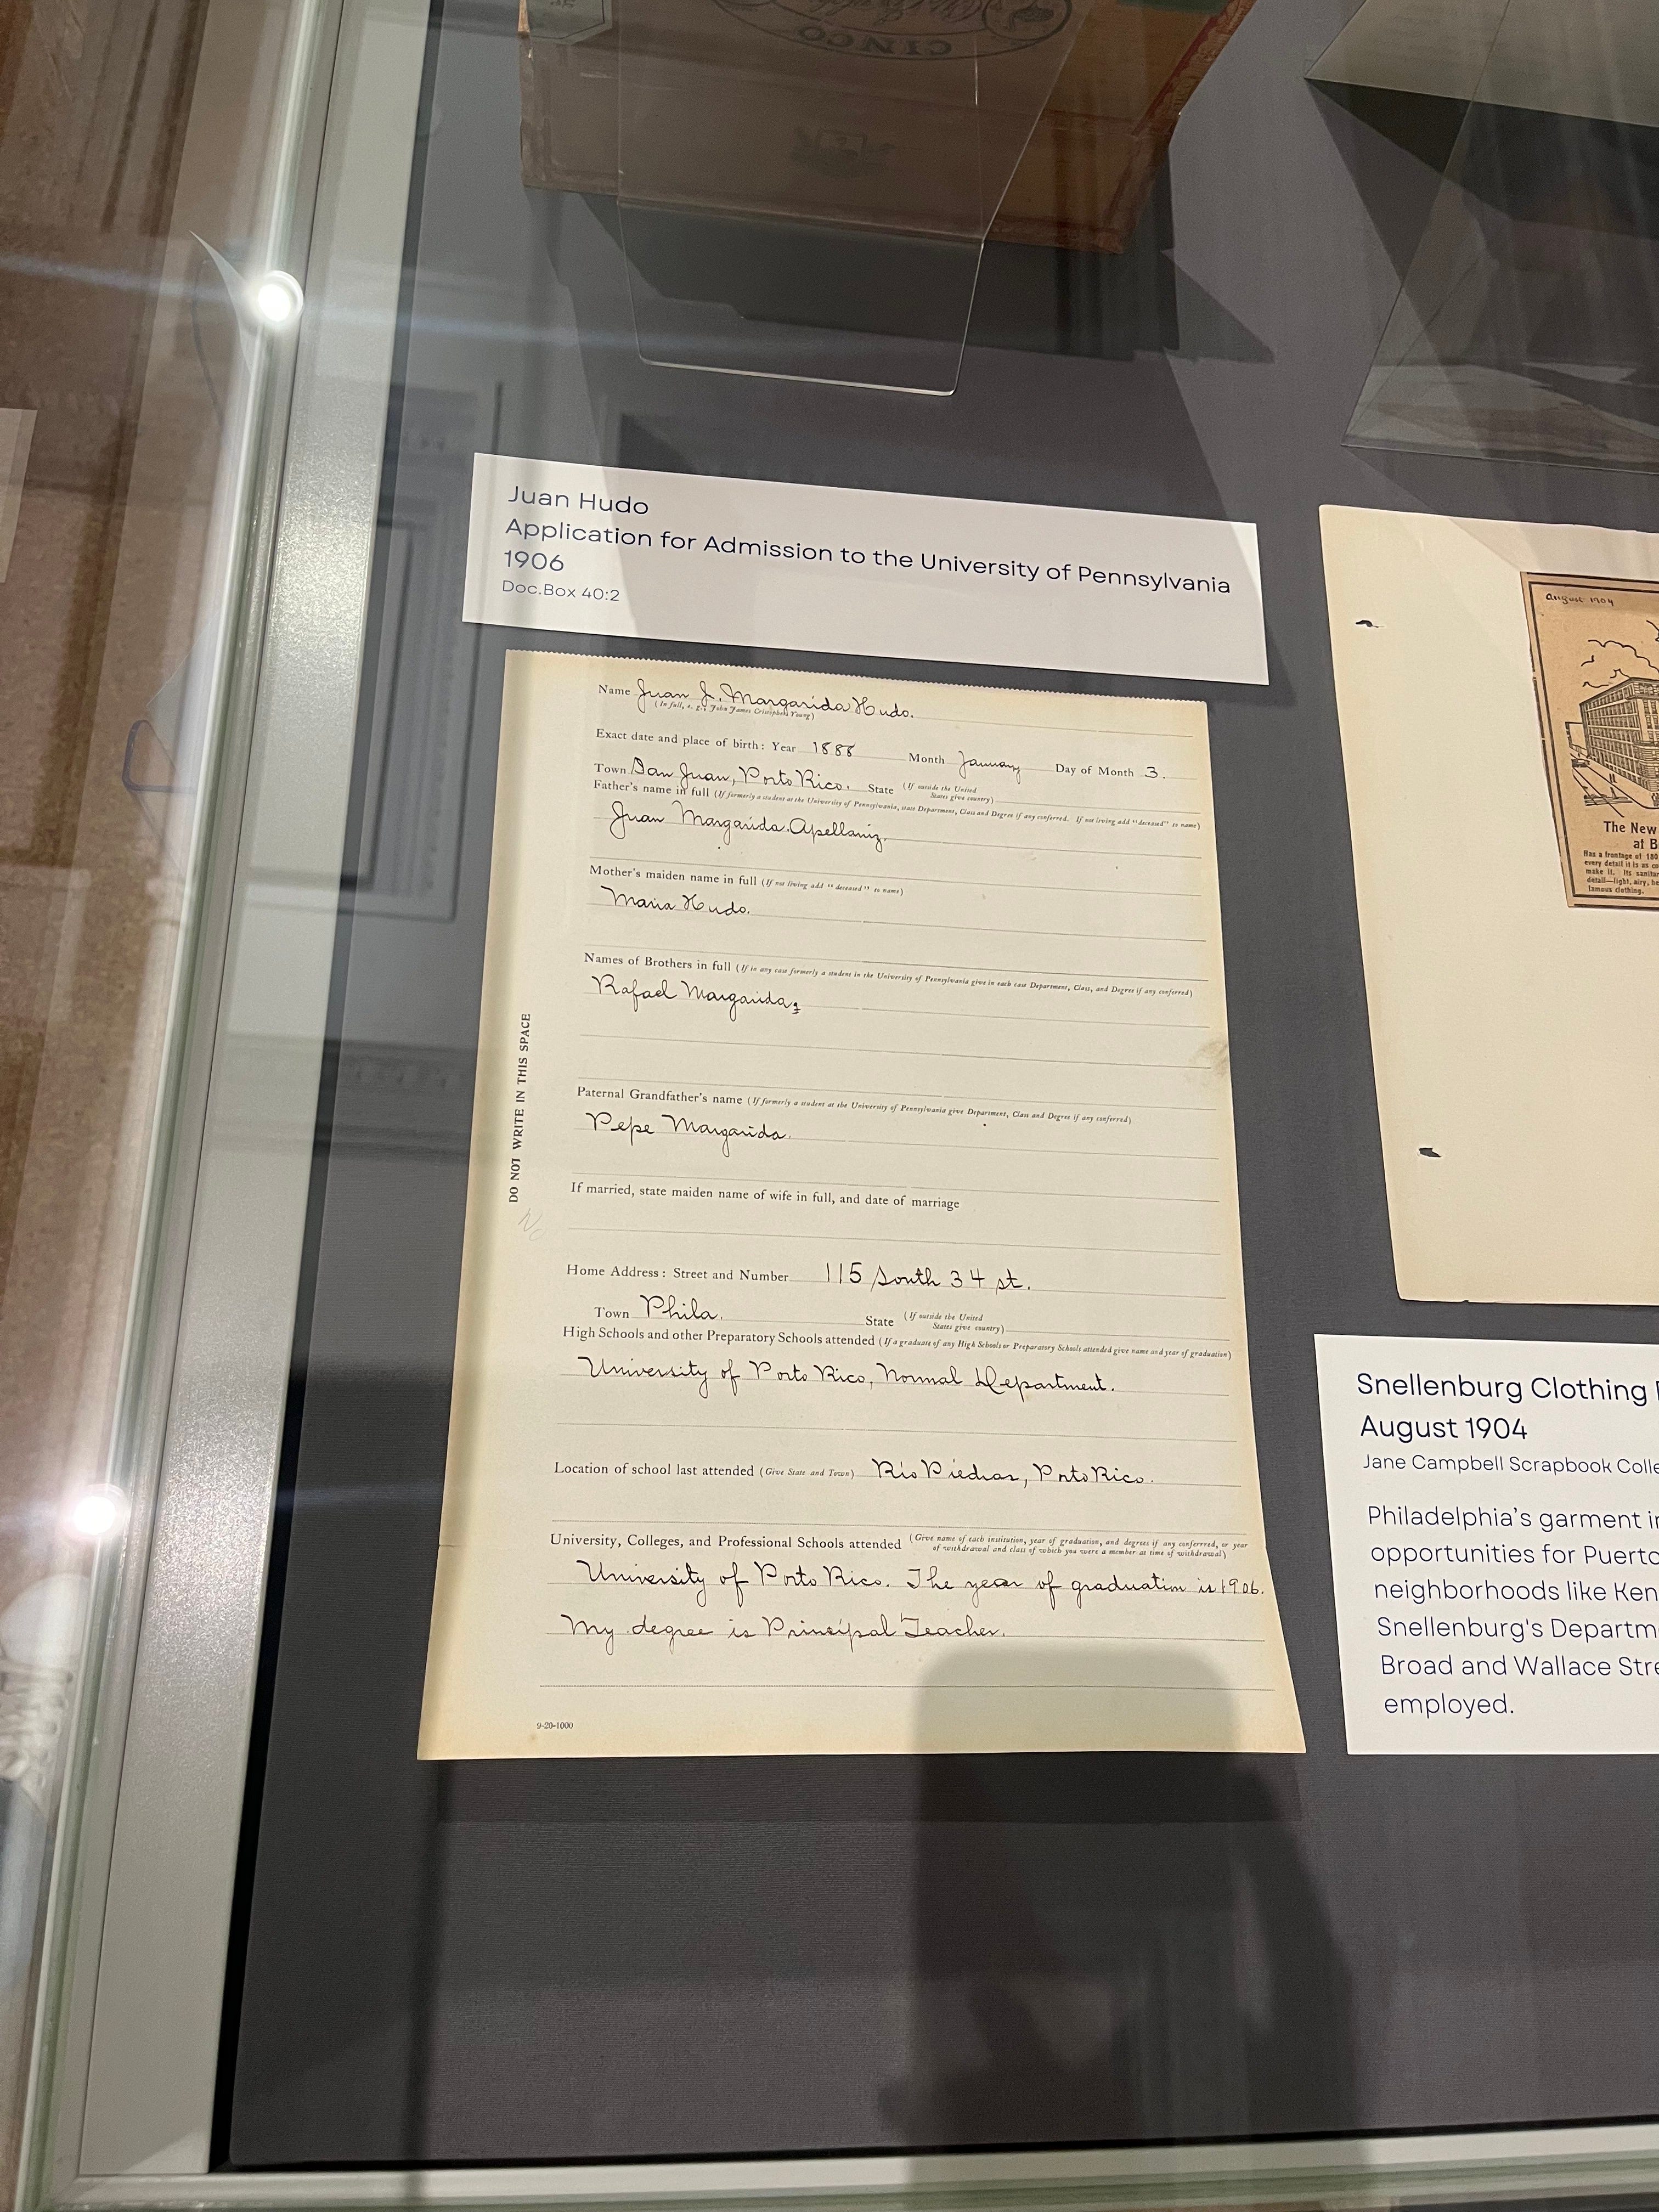 CINCO
Juan Hudo
Application for Admission to the University of Pennsylvania
1906
Doc.Box 40:2
Name Juan J. Margarida Hudo.
(In full, e. g., John James Cristopher Young)
Exact date and place of birth: Year 1888 Month January Day of Month 3.
Town San Juan, Porto Rico. State (If outside the United
States give country)
Father's name in full (If formerly a student at the University of Pennsylvania, state Department, Class and Degree if any conferred. If not living add "deceased" to name)
Juan Margarida Apellaniz.
Mother's maiden name in full (If not living add "deceased" to name)
Maria Hudo.
Names of Brothers in full (If in any case formerly a student in the University of Pennsylvania give in each case Department, Class, and Degree if any conferred)
Rafael Margarida
Paternal Grandfather's name (If formerly a student at the University of Pennsylvania give Department, Class and Degree if any conferred)
Pepe Margarida.
If married, state maiden name of wife in full, and date of marriage
DO NOT WRITE IN THIS SPACE
No
Home Address: Street and Number 115 South 34 st.
Town Phila. State (If outside the United
States give country)
High Schools and other Preparatory Schools attended (If a graduate of any High Schools or Preparatory Schools attended give name and year of graduation)
University of Porto Rico, Normal Department.
Location of school last attended (Give State and Town) Rio Piedras, Porto Rico.
University, Colleges, and Professional Schools attended (Give name of each institution, year of graduation, and degrees if any conferred, or year
of withdrawal and class of which you were a member at time of withdrawal)
University of Porto Rico. The year of graduation is 1906.
My degree is Principal Teacher.
9-20-1000
August 1904
The New
at B
Has a frontage of 180
every detail it is as co
make it. Its sanitar
detail—light, airy, he
famous clothing.
Snellenburg Clothing
August 1904
Jane Campbell Scrapbook Colle
Philadelphia's garment in
opportunities for Puerto
neighborhoods like Ken
Snellenburg's Departm
Broad and Wallace Stre
employed.